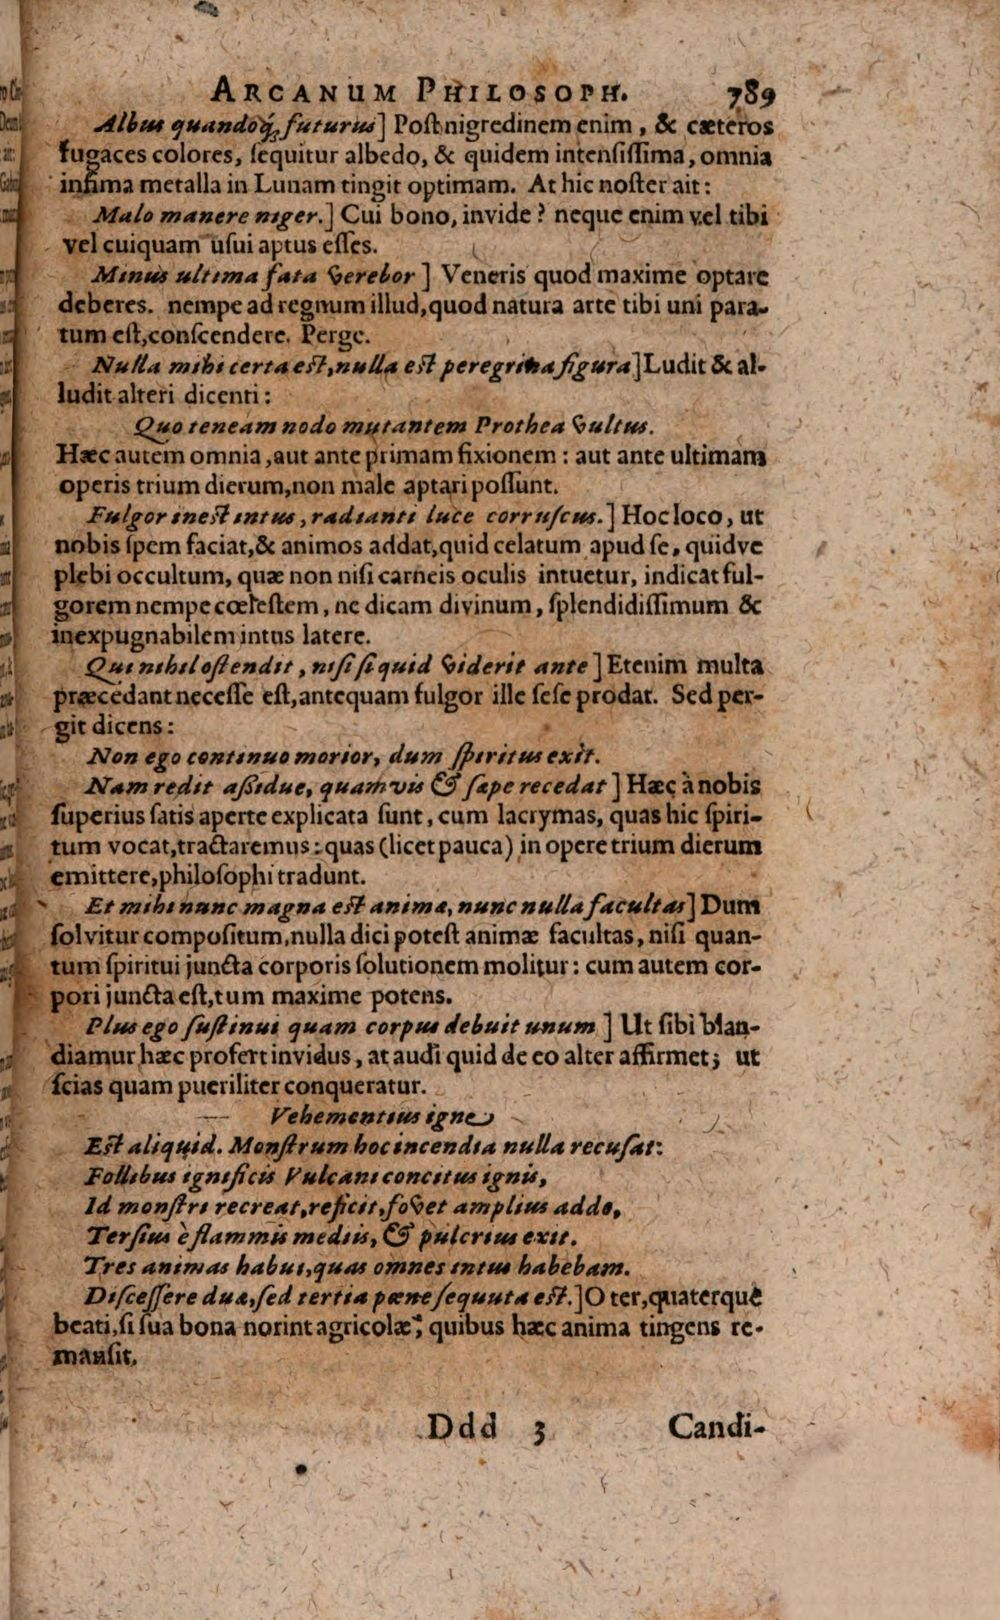 ARCANUM PHILOSOPH. 789
Albus quandoq́; futurus] Post nigredinem enim, & cæteros
fugaces colores, sequitur albedo, & quidem intensissima, omnia
infima metalla in Lunam tingit optimam. At hic noster ait:
Malo manere niger.] Cui bono, invide? neque enim vel tibi
vel cuiquam usui aptus esses.
Minus ultima fata verebor] Veneris quod maxime optare
deberes. nempe ad regnum illud, quod natura arte tibi uni para-
tum est, conscendere. Perge.
Nulla mihi certa est, nulla est peregrina figura] Ludit & al-
ludit alteri dicenti:
Quo teneam nodo mutantem Prothea vultus.
Hæc autem omnia, aut ante primam fixionem: aut ante ultimam
operis trium dierum, non male aptari possunt.
Fulgor inest intus, radianti luce corruscus.] Hoc loco, ut
nobis spem faciat, & animos addat, quid celatum apud se, quidve
plebi occultum, quæ non nisi carneis oculis intuetur, indicat ful-
gorem nempe cœlestem, ne dicam divinum, splendidissimum &
inexpugnabilem intus latere.
Qui nihil ostendit, nisi si quid viderit ante] Etenim multa
præcedant necesse est, antequam fulgor ille sese prodat. Sed per-
git dicens:
Non ego continuo morior, dum spiritus exit.
Nam redit assidue, quamvis & sæpe recedat] Hæc à nobis
superius satis aperte explicata sunt, cum lacrymas, quas hic spiri-
tum vocat, tractaremus: quas (licet pauca) in opere trium dierum
emittere, philosophi tradunt.
Et mihi nunc magna est anima, nunc nulla facultas] Dum
solvitur compositum, nulla dici potest animæ facultas, nisi quan-
tum spiritui juncta corporis solutionem molitur: cum autem cor-
pori juncta est, tum maxime potens.
Plus ego sustinui quam corpus debuit unum] Ut sibi blan-
diamur hæc profert invidus, at audi quid de eo alter affirmet; ut
scias quam pueriliter conqueratur.
— Vehementius igne
Est aliquid. Monstrum hoc incendia nulla recusat:
Follibus ignificis Vulcani concitus ignis,
Id monstri recreat, reficit, fovet amplius addo,
Tersius è flammis mediis, & pulcrius exit.
Tres animas habui, quas omnes intus habebam.
Discessere duæ, sed tertia pœne sequuta est.] O ter, quaterque
beati, si sua bona norint agricolæ; quibus hæc anima tingens re-
mansit.
Ddd 3 Candi-